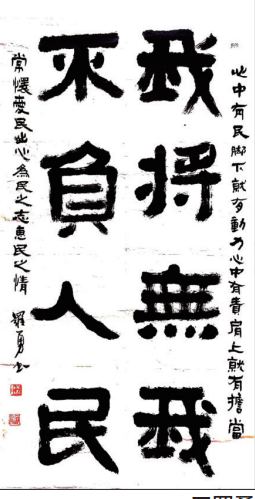 心中有民脚下就有動力心中有責肩上就有擔當
我將無我
不負人民
常懷愛民之心為民之志惠民之情 羅勇书